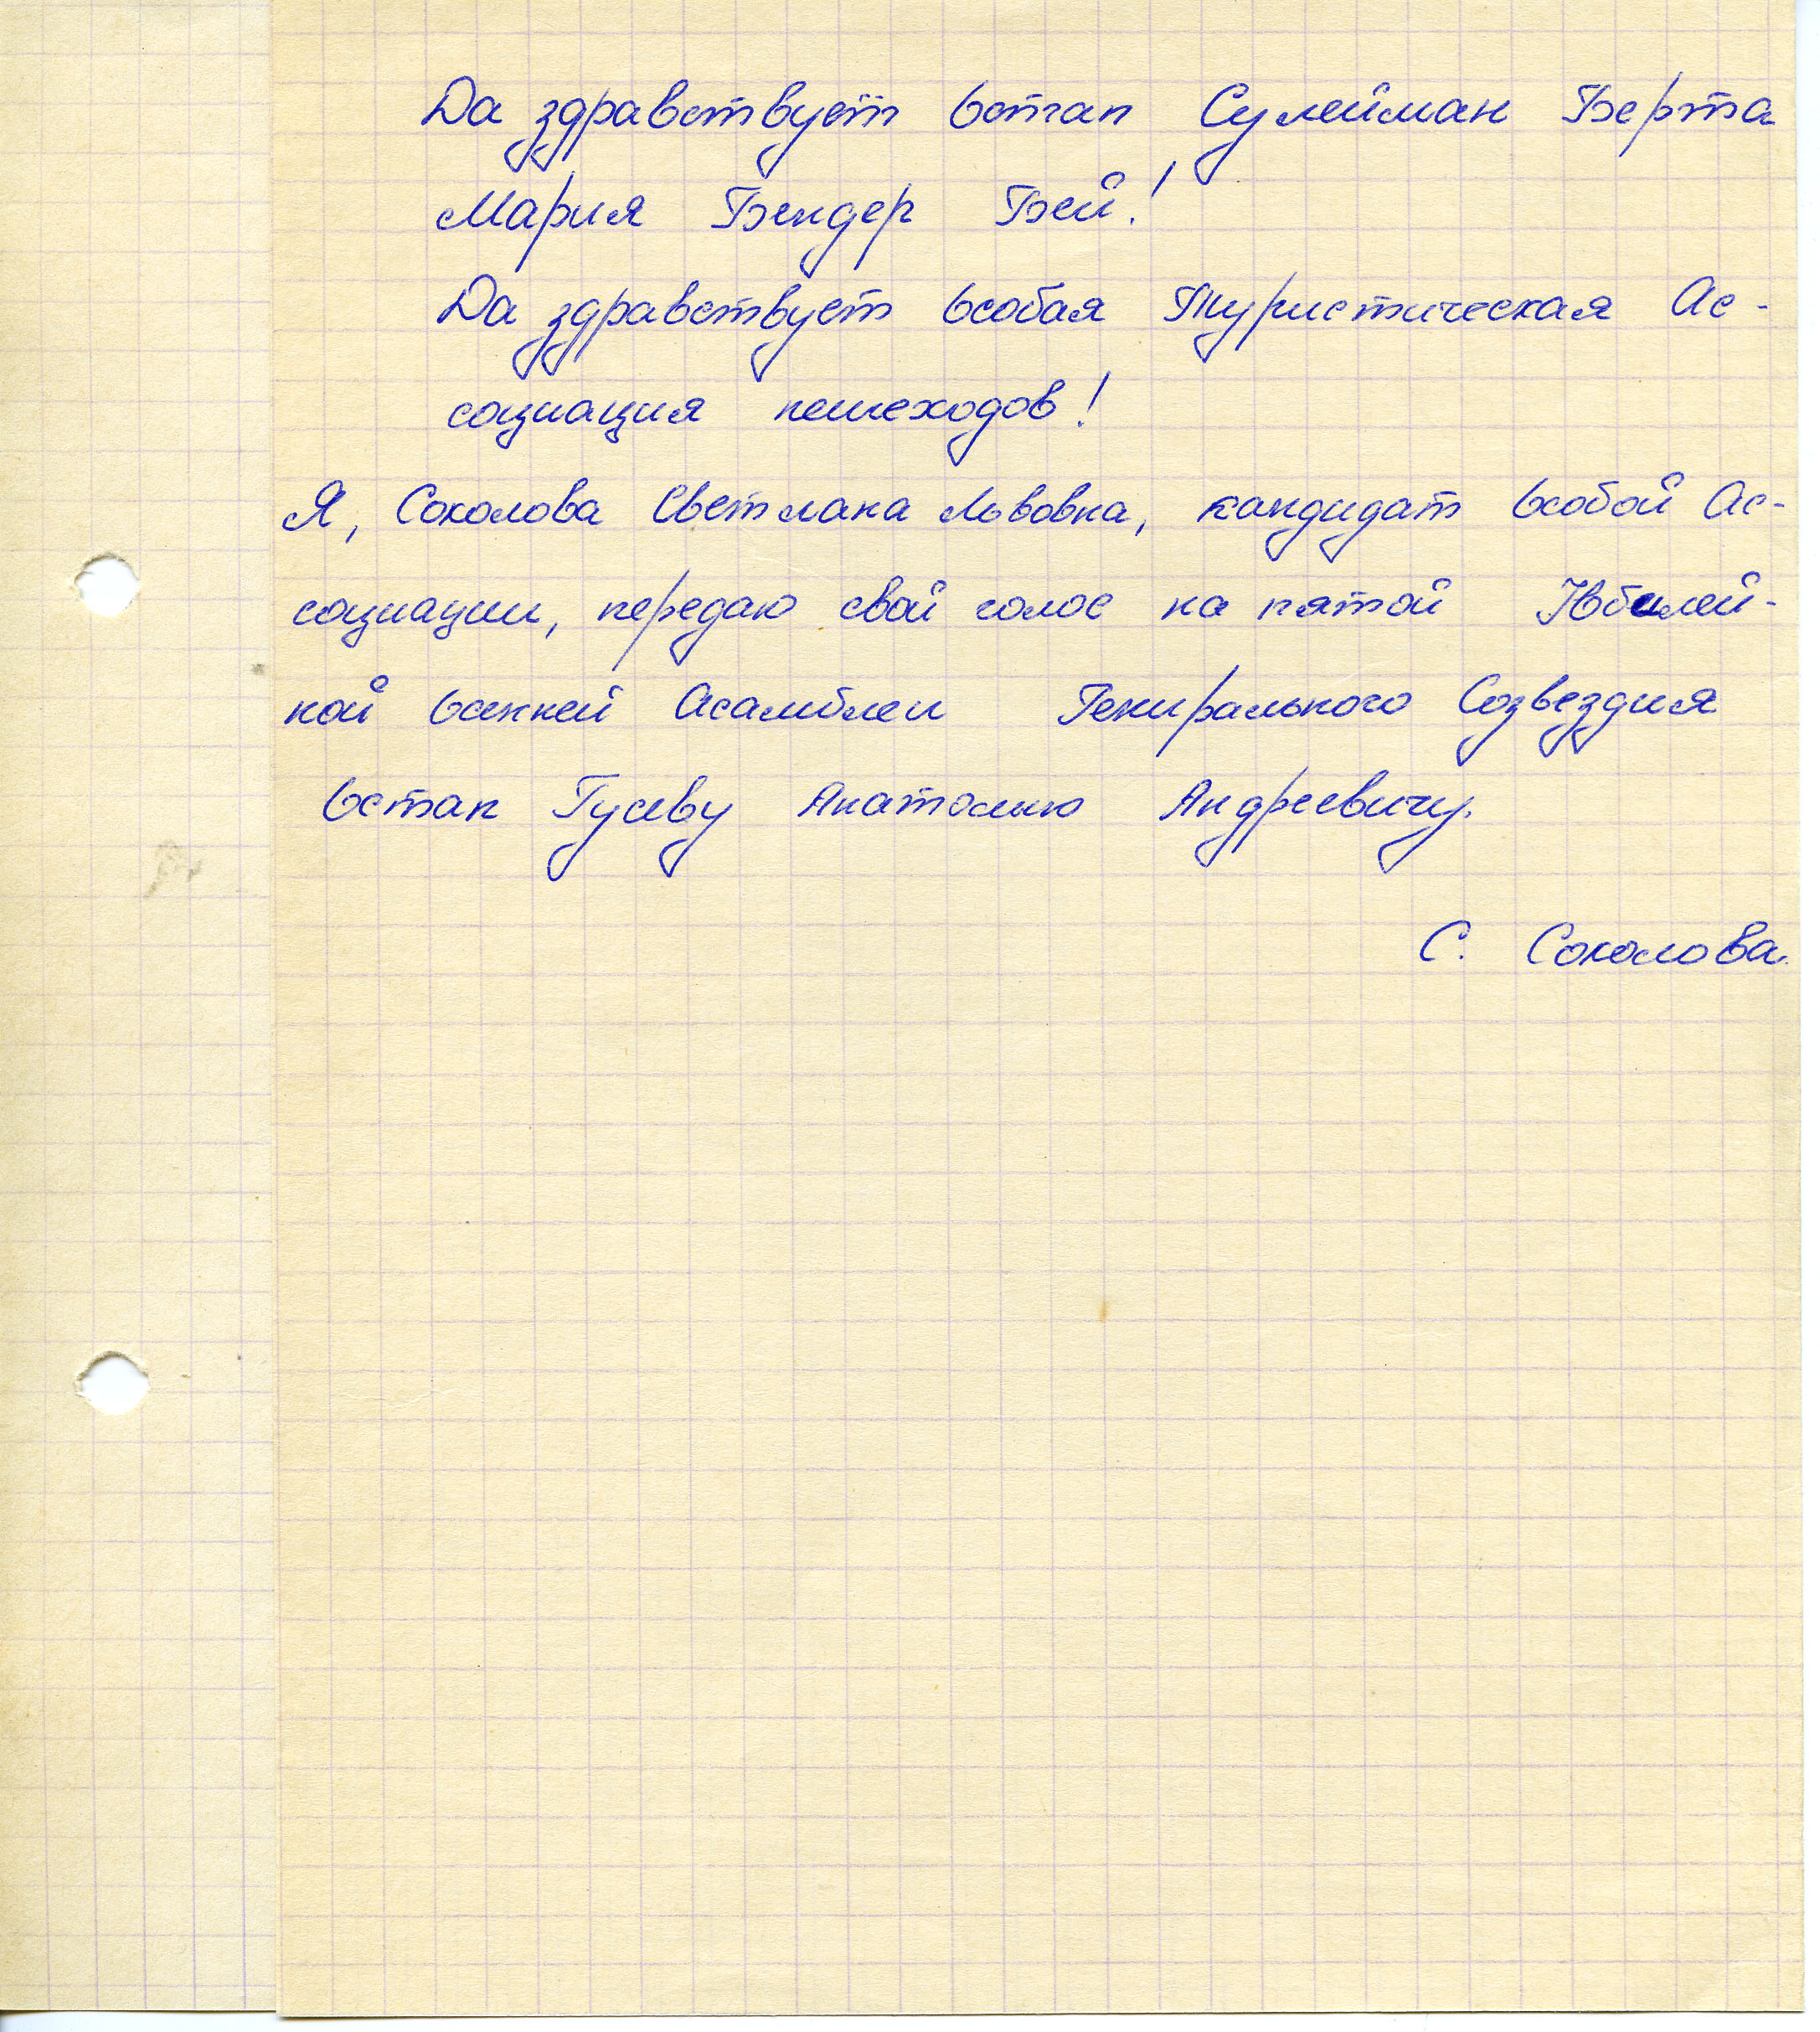 Да здравствует Остап Сулейман Берта
Мария Бендер Бей!
Да здравствует Особая Туристическая Ас-
социация пешеходов!
Я, Соколова Светлана Львовна, кандидат Особой Ас-
социации, передаю свой голос на пятой Юбилей-
ной Осенней Асамблеи Генирального Созвездия
Остап Гусеву Анатолию Андреевичу.
С. Соколова.